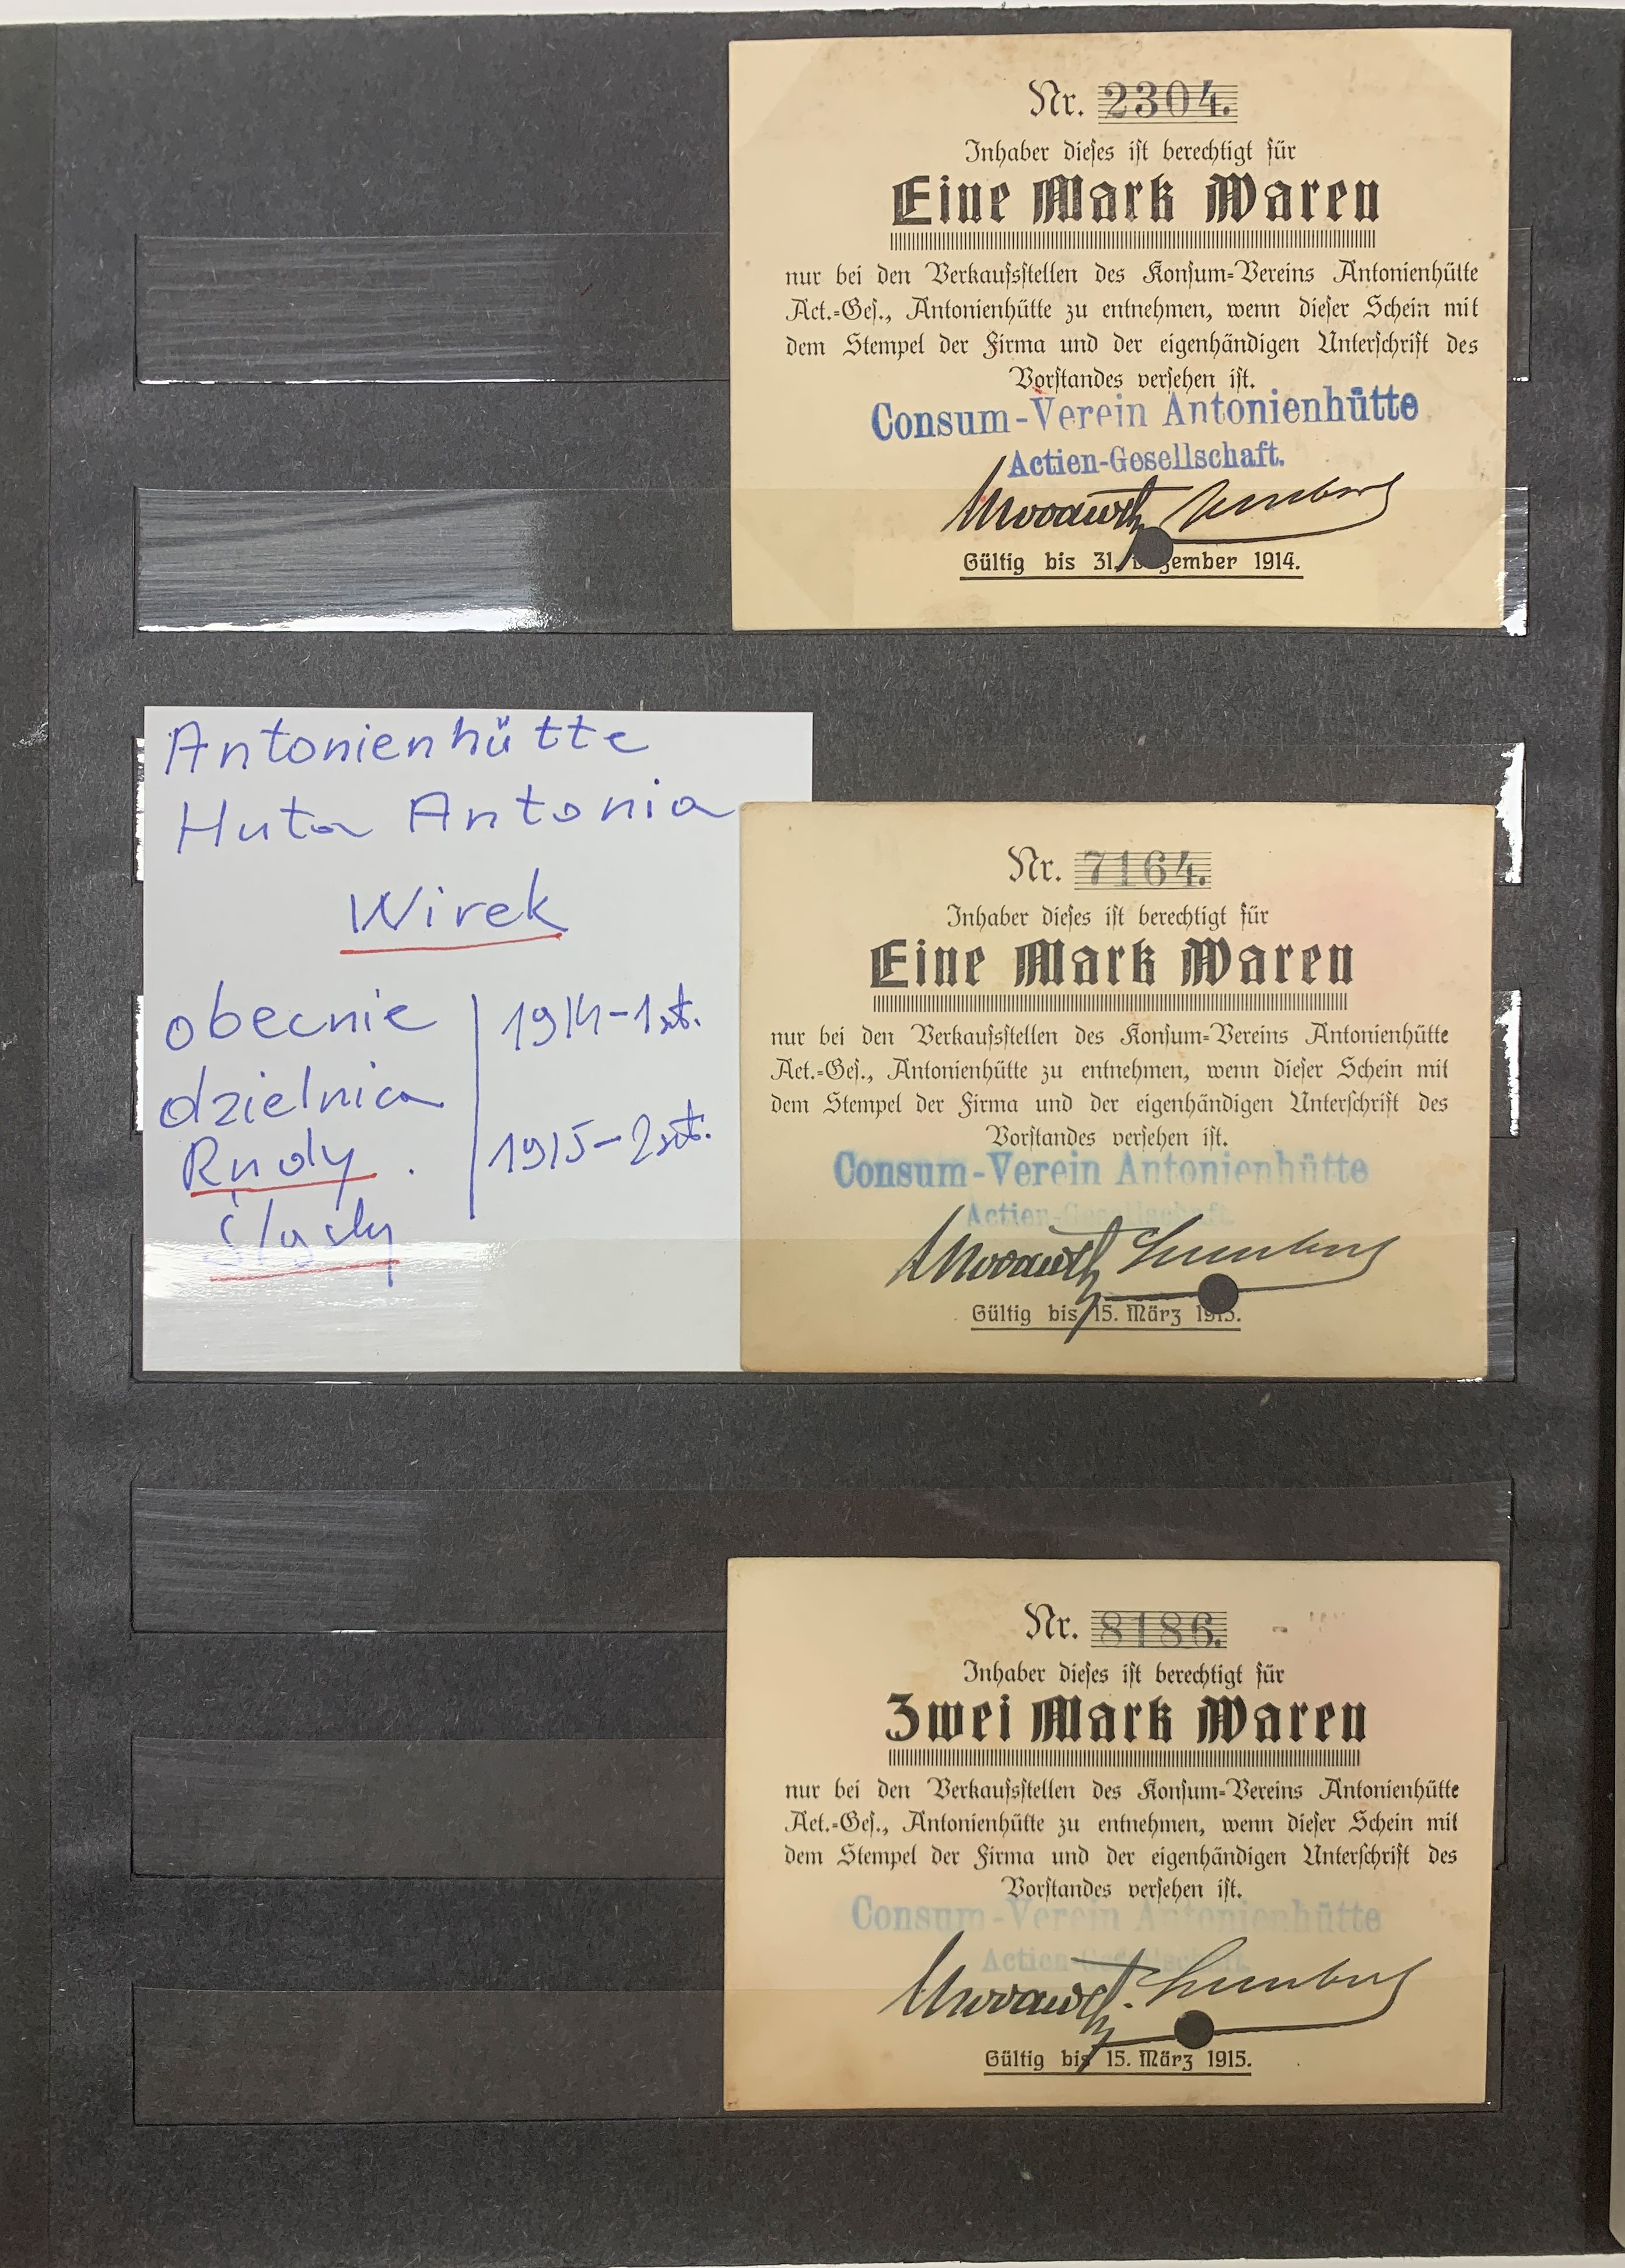 Nr. 2304.
Inhaber dieses ist berechtigt für
Eine Mark Waren
nur bei den Verkaufsstellen des Konsum-Vereins Antonienhütte
Act.-Ges., Antonienhütte zu entnehmen, wenn dieser Schein mit
dem Stempel der Firma und der eigenhändigen Unterschrift des
Vorstandes versehen ist.
Consum-Verein Antonienhütte
Actien-Gesellschaft.
Gültig bis 31. Dezember 1914.
Antonienhütte
Huta Antonia
Wirek
obecnie
dzielnica
Rudy
Śląskiej
1914-1szt.
1915-2szt.
Nr. 7164.
Inhaber dieses ist berechtigt für
Eine Mark Waren
nur bei den Verkaufsstellen des Konsum-Vereins Antonienhütte
Act.-Ges., Antonienhütte zu entnehmen, wenn dieser Schein mit
dem Stempel der Firma und der eigenhändigen Unterschrift des
Vorstandes versehen ist.
Consum-Verein Antonienhütte
Actien-Gesellschaft.
Gültig bis 15. März 1915.
Nr. 8186.
Inhaber dieses ist berechtigt für
Zwei Mark Waren
nur bei den Verkaufsstellen des Konsum-Vereins Antonienhütte
Act.-Ges., Antonienhütte zu entnehmen, wenn dieser Schein mit
dem Stempel der Firma und der eigenhändigen Unterschrift des
Vorstandes versehen ist.
Consum-Verein Antonienhütte
Actien-Gesellschaft.
Gültig bis 15. März 1915.